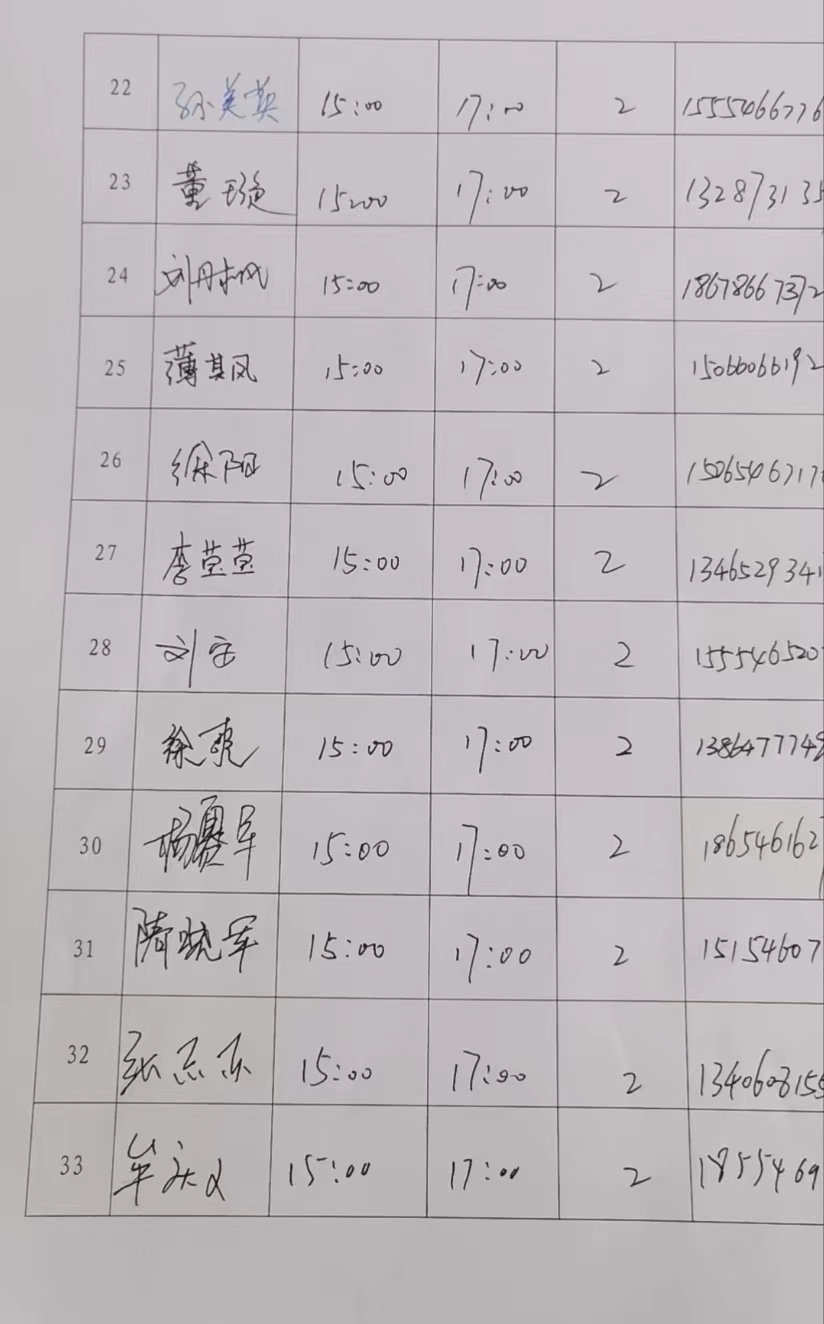 22 孙美英 15:00 17:00 2 15554066776
23 董璇 15:00 17:00 2 132873135
24 刘丹 15:00 17:00 2 18678667372
25 薄其风 15:00 17:00 2 15066066192
26 徐阳 15:00 17:00 2 1506546717
27 李莹莹 15:00 17:00 2 1346529341
28 刘宝 15:00 17:00 2 155546520
29 徐亮 15:00 17:00 2 1386477749
30 杨军 15:00 17:00 2 186546162
31 隋晓军 15:00 17:00 2 15154607
32 张 15:00 17:00 2 1340608155
33 牟 15:00 17:00 2 1855469